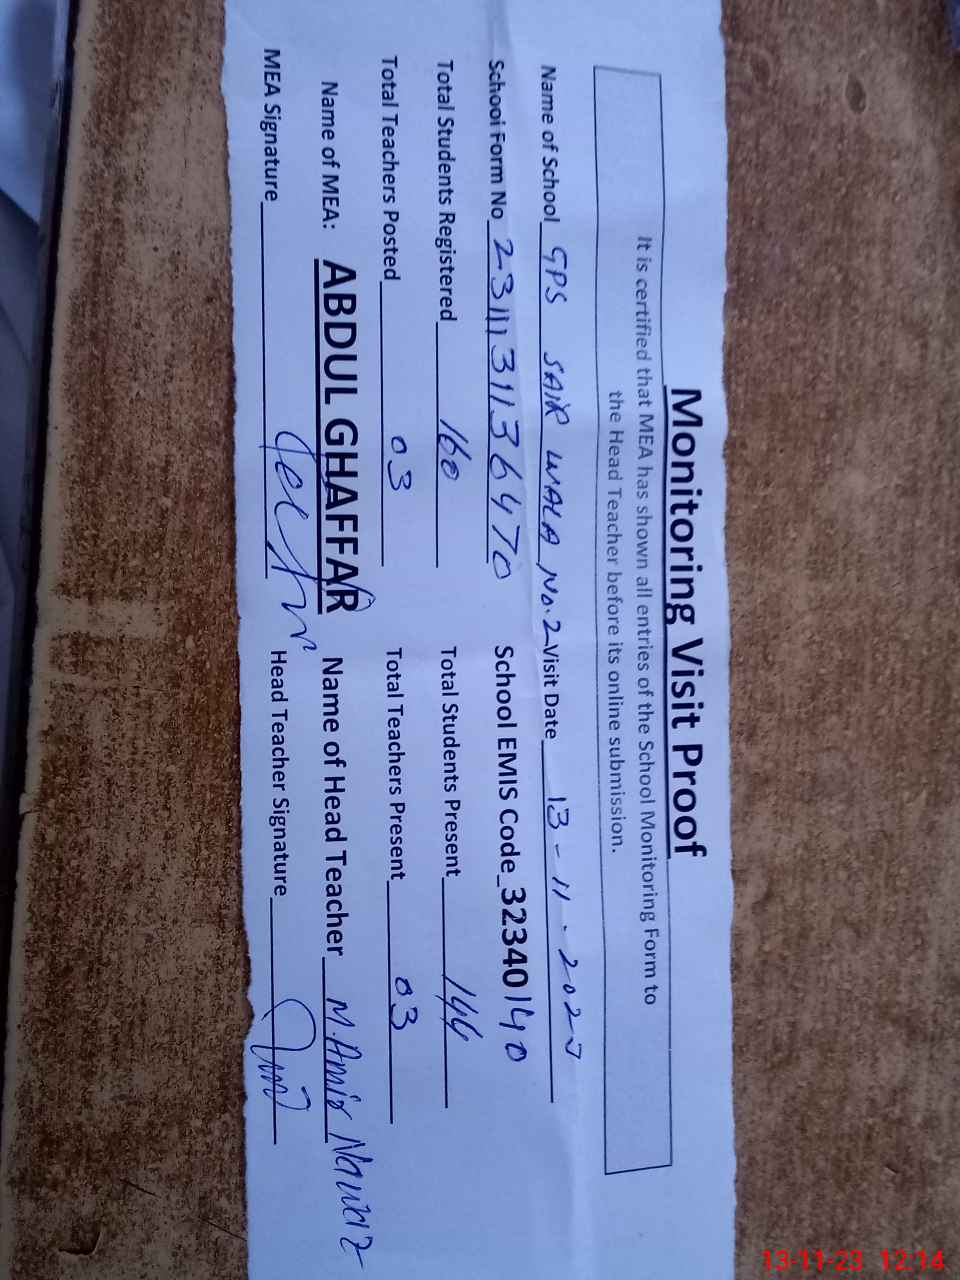 Monitoring Visit Proof
It is certified that MEA has shown all entries of the School Monitoring Form to
the Head Teacher before its online submission.
Name of School GPS SAIR WALA No.2 Visit Date 13-11-2023
School Form No School EMIS Code_32340140
Total Students Registered 160 Total Students Present 144
Total Teachers Posted 03 Total Teachers Present 03
Name of MEA: ABDUL GHAFFAR Name of Head Teacher M.Amir Nawaz
MEA Signature Head Teacher Signature
13-11-23 12:14